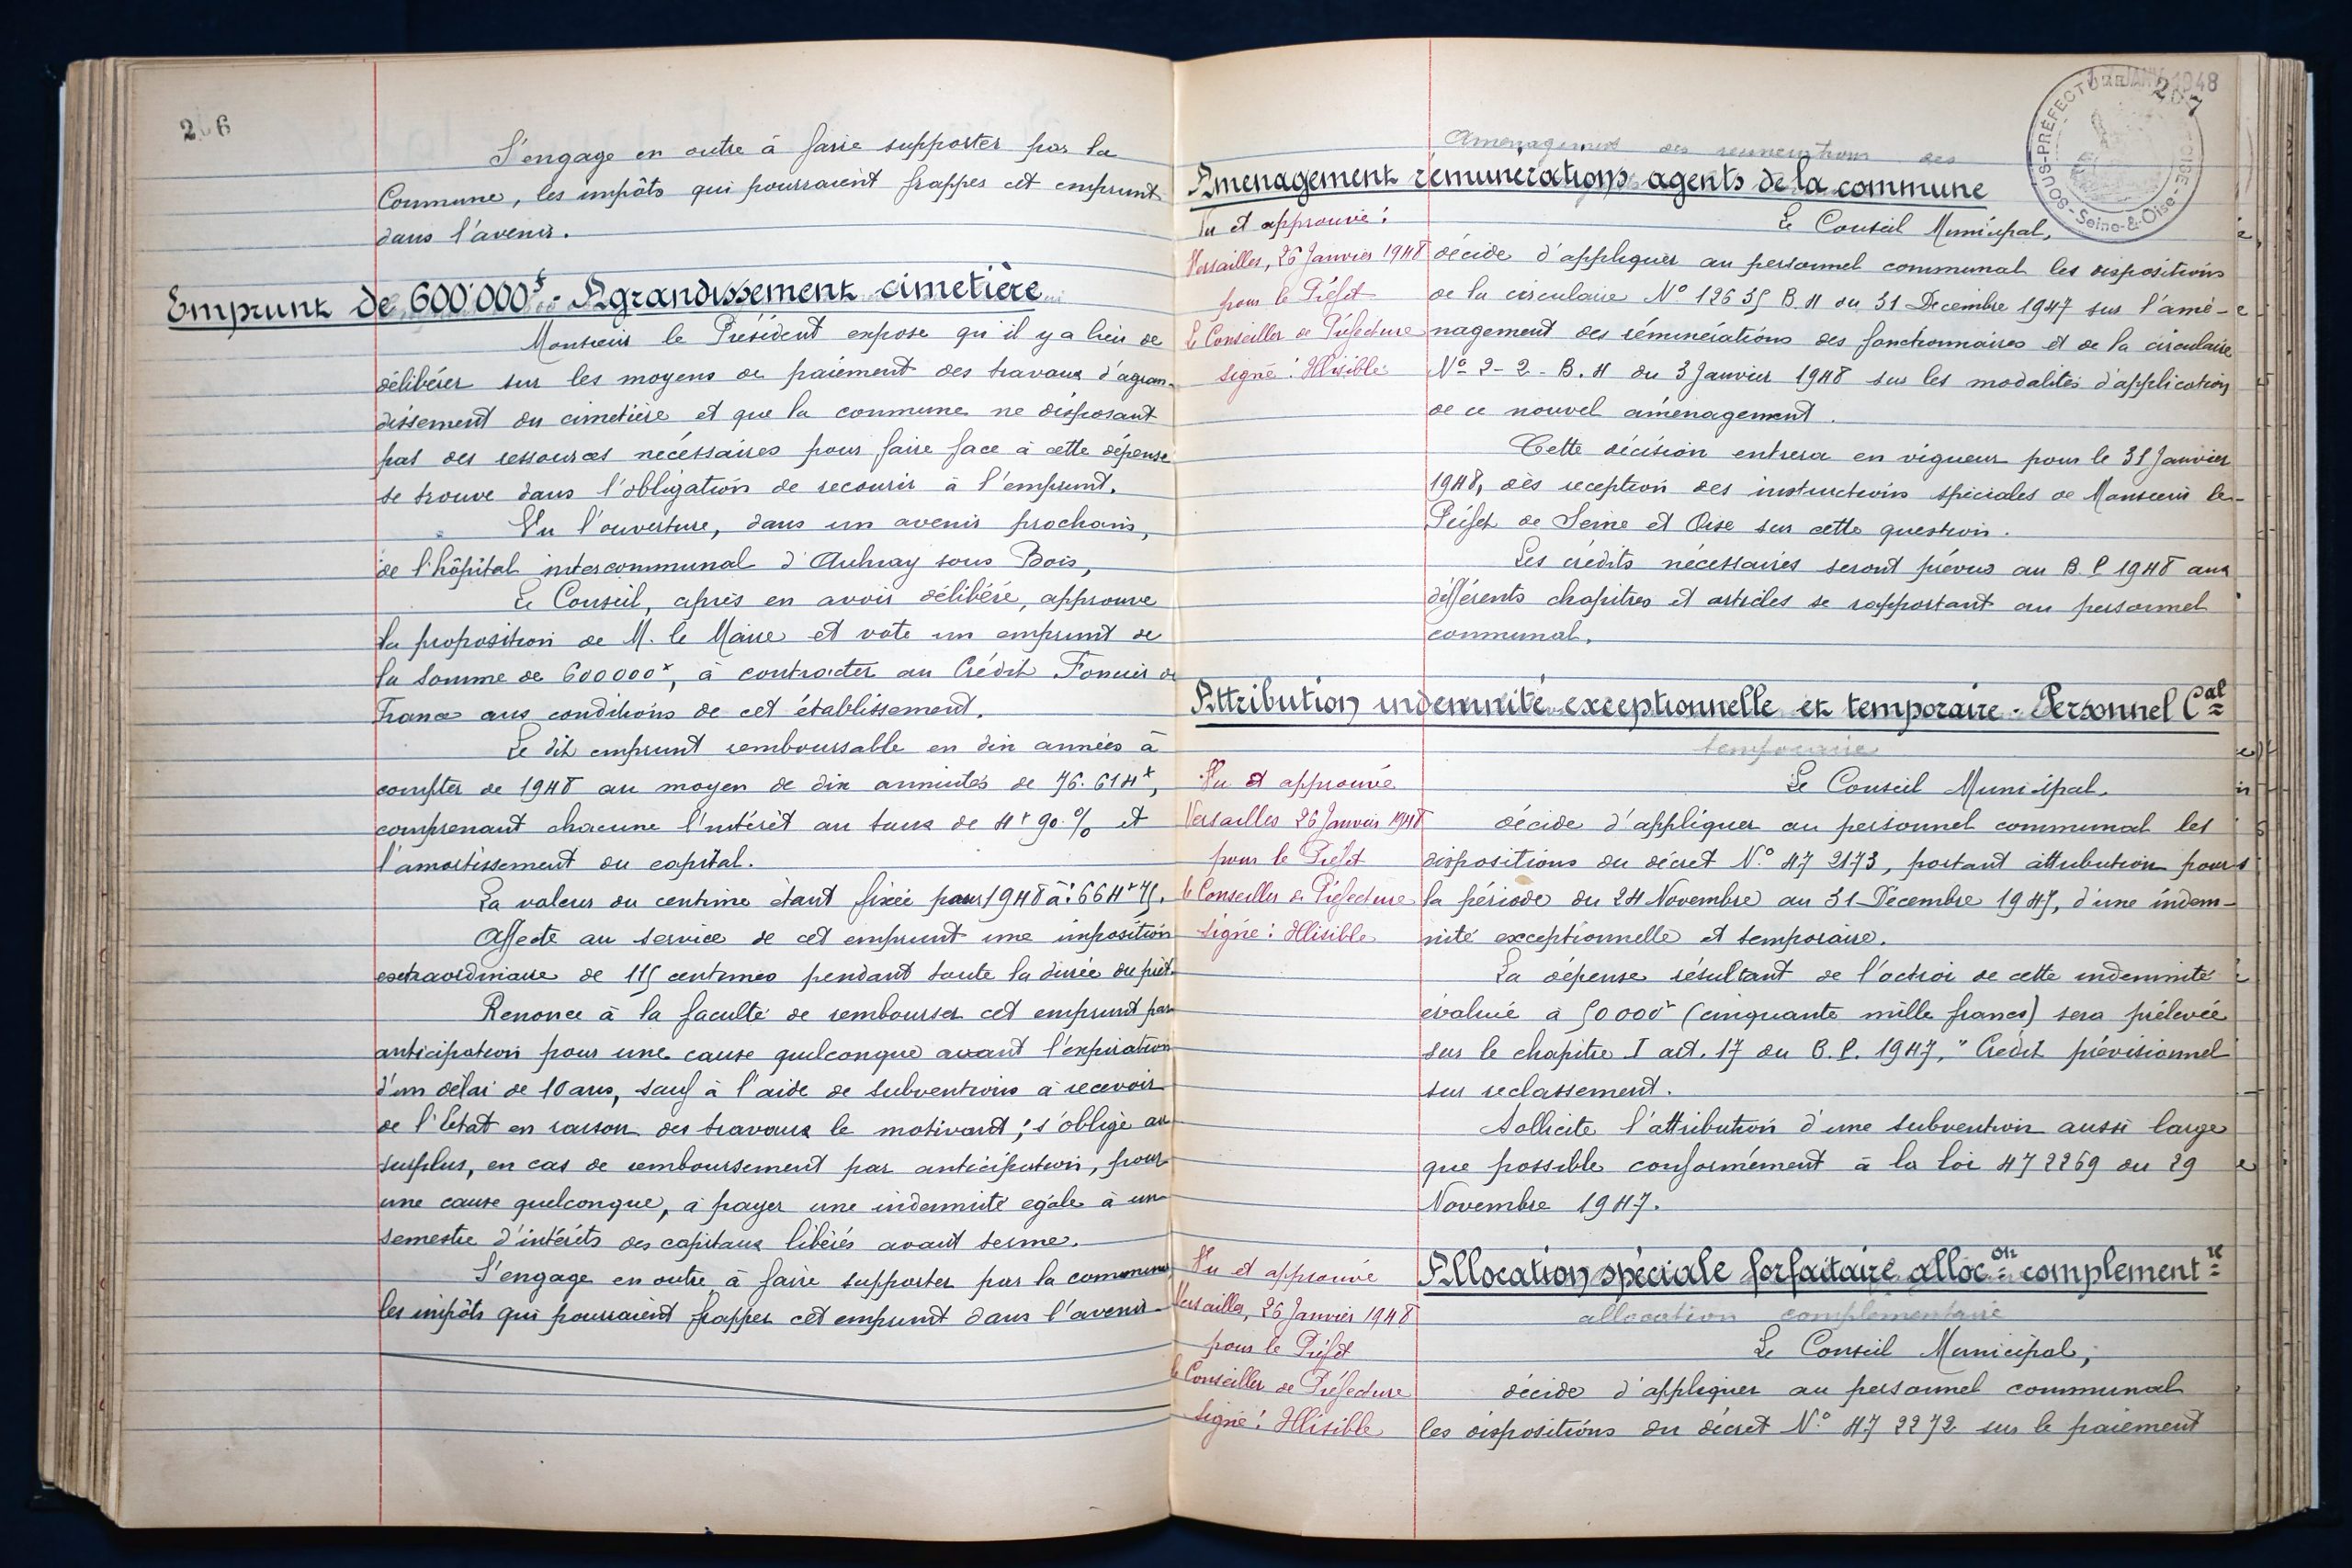 206
S'engage en outre à faire supporter par la
Commune, les impôts qui pourraient frapper cet emprunt
dans l'avenir.
Emprunt de 600.000f - Agrandissement cimetière
Monsieur le Président expose qu'il y a lieu de
délibérer sur les moyens de paiement des travaux d'agran-
dissement du cimetière et que la commune ne disposant
pas des ressources nécessaires pour faire face à cette dépense
se trouve dans l'obligation de recourir à l'emprunt.
Vu l'ouverture, dans un avenir prochain,
de l'hôpital intercommunal d'Aulnay sous Bois,
Le Conseil, après en avoir délibéré, approuve
la proposition de M. le Maire et vote un emprunt de
la somme de 600000f, à contracter au Crédit Foncier de
France aux conditions de cet établissement.
Le dit emprunt remboursable en dix années à
compter de 1948 au moyen de dix annuités de 76.614f,
comprenant chacune l'intérêt au taux de 4f90 % et
l'amortissement du capital.
La valeur du centime étant fixée pour 1948 à : 664f75.
Affecte au service de cet emprunt une imposition
extraordinaire de 115 centimes pendant toute la durée du prêt.
Renonce à la faculté de rembourser cet emprunt par
anticipation pour une cause quelconque avant l'expiration
d'un délai de 10 ans, sauf à l'aide de subventions à recevoir
de l'Etat en raison des travaux le motivant ; s'oblige au
surplus, en cas de remboursement par anticipation, pour
une cause quelconque, à payer une indemnité égale à un
semestre d'intérêts des capitaux libérés avant terme.
S'engage en outre à faire supporter par la commune
les impôts qui pourraient frapper cet emprunt dans l'avenir.
JANV 1948
207
SOUS-PRÉFECTURE
OISE
Seine-&-Oise
Aménagement des rémunérations des
Aménagement rémunérations agents de la commune
Vu et approuvé :
Versailles, 26 Janvier 1948
pour le Préfet
le Conseiller de Préfecture
signé : Illisible
Le Conseil Municipal,
décide d'appliquer au personnel communal les dispositions
de la circulaire N° 126 35 B.H du 31 Decembre 1947 sur l'amé-
nagement des rémunérations des fonctionnaires et de la circulaire
N° 2-2-B.H du 3 Janvier 1948 sur les modalités d'application
de ce nouvel aménagement.
Cette décision entrera en vigueur pour le 31 Janvier
1948, dès reception des instructions spéciales de Monsieur le
Préfet de Seine et Oise sur cette question.
Les crédits nécessaires seront prévus au B.P 1948 aux
différents chapitres et articles se rapportant au personnel
communal.
Attribution indemnité exceptionnelle et temporaire - Personnel Cal
temporaire
Vu et approuvé
Versailles 26 Janvier 1948
pour le Préfet
le Conseiller de Préfecture
signé : Illisible
Le Conseil Municipal.
décide d'appliquer au personnel communal les
dispositions du décret N° 47 2173, portant attribution pour
la période du 24 Novembre au 31 Décembre 1947, d'une indem-
nité exceptionnelle et temporaire.
La dépense résultant de l'octroi de cette indemnité
évalué à 50000f (cinquante mille francs) sera prélevée
sur le chapitre I art. 17 du B.P. 1947, " Crédit prévisionnel
sur reclassement.
Sollicite l'attribution d'une subvention aussi large
que possible conformément à la loi 47 2269 du 29
Novembre 1947.
Allocation spéciale forfaitaire allocon complementre
allocation complémentaire
Vu et approuvé
Versailles, 26 Janvier 1948
pour le Préfet
le Conseiller de Préfecture
signé : Illisible
Le Conseil Municipal,
décide d'appliquer au personnel communal
les dispositions du décret N° 47 2272 sur le paiement